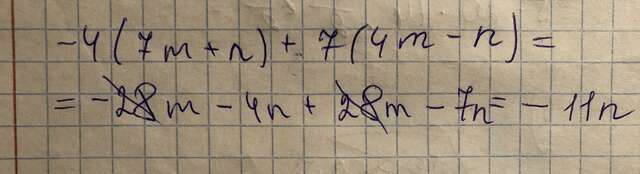 -4(7m+n)+7(4m-n)=
=-28m-4n+28m-7n=-11n